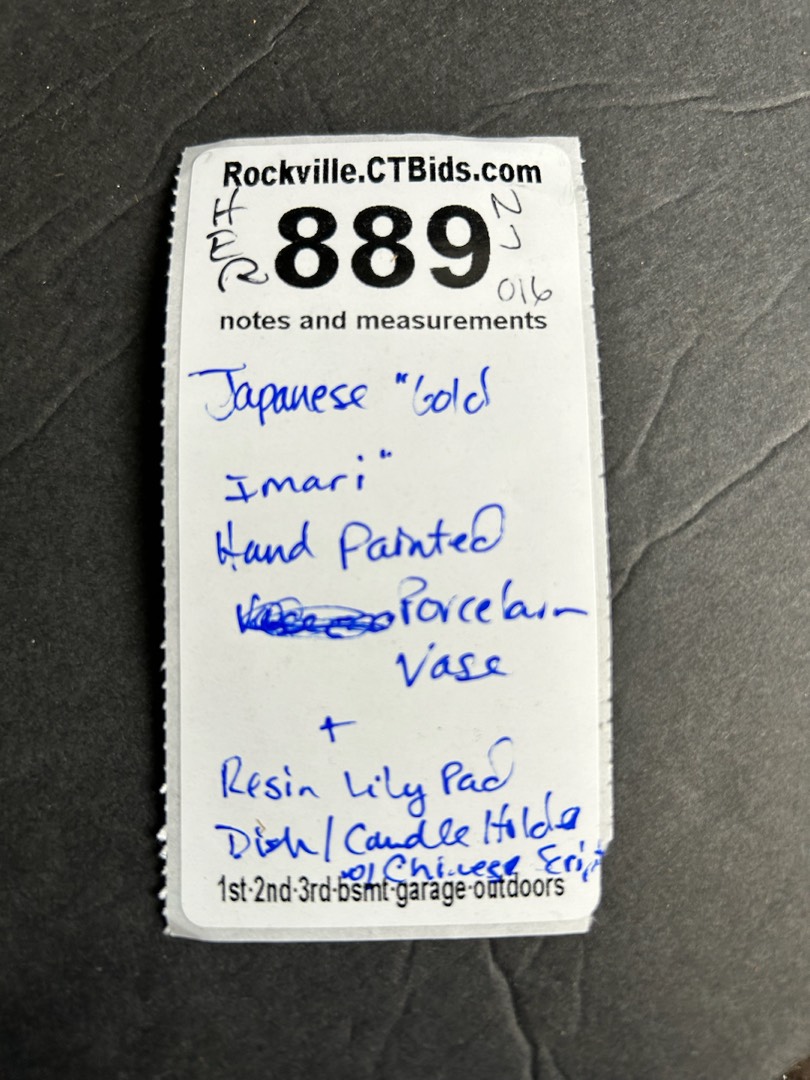 Rockville.CTBids.com
HER
889
016
notes and measurements
Japanese "Gold
Imari"
Hand Painted
Porcelain
Vase
+
Resin Lily Pad
Dish/Candle Holder
w/ Chinese Script
1st·2nd·3rd·bsmt·garage·outdoors